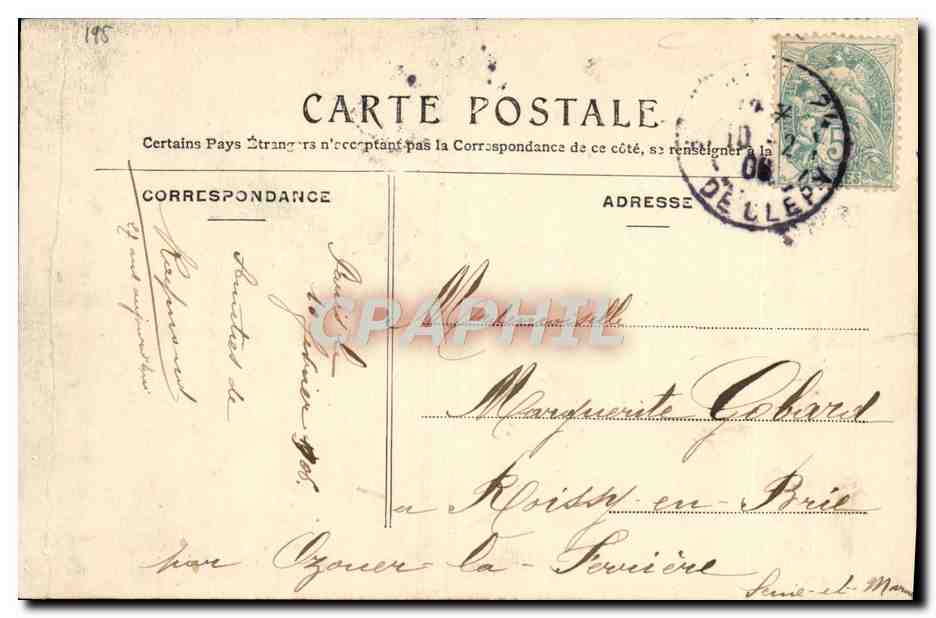 195
CARTE POSTALE
Certains Pays Étrangers n'acceptant pas la Correspondance de ce côté, se renseigner à la
CORRESPONDANCE
ADRESSE
Paris le
10 février 1906.
de
Raymond
CPAPHIL
Mademoiselle
Marguerite Gobard
à Roissy-en-Brie
par Ozouer-la-Ferrière
Seine-et-Marne
10 2
06
5